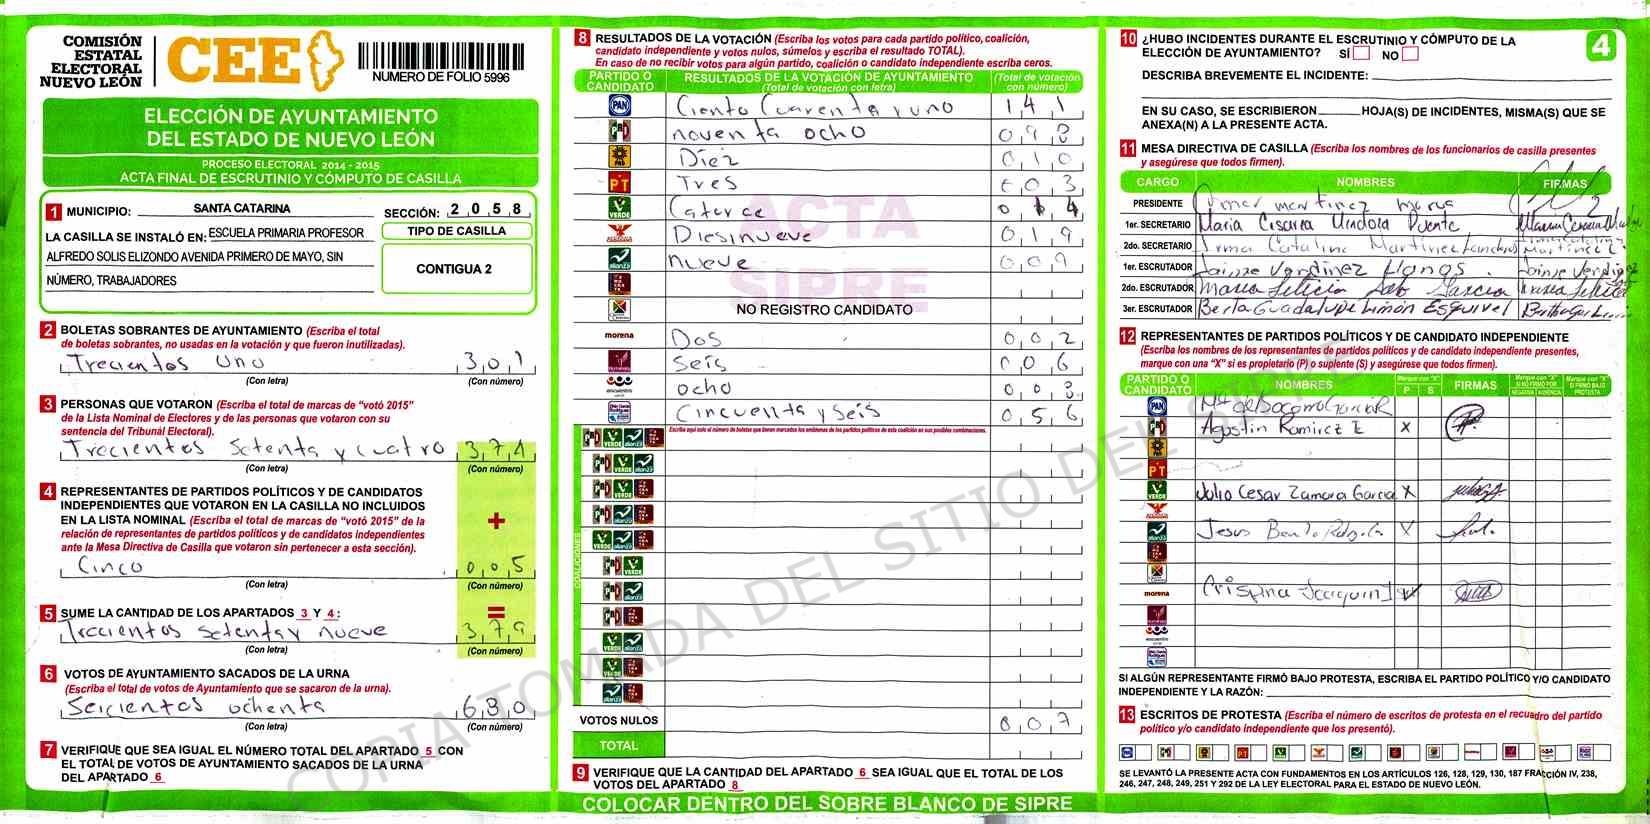 COMISIÓN
ESTATAL
ELECTORAL
NUEVO LEÓN
CEE
NUMERO DE FOLIO 5996
ELECCIÓN DE AYUNTAMIENTO
DEL ESTADO DE NUEVO LEÓN
PROCESO ELECTORAL 2014 - 2015
ACTA FINAL DE ESCRUTINIO Y CÓMPUTO DE CASILLA
1 MUNICIPIO: SANTA CATARINA SECCIÓN: 2 0 5 8
LA CASILLA SE INSTALÓ EN: ESCUELA PRIMARIA PROFESOR
ALFREDO SOLIS ELIZONDO AVENIDA PRIMERO DE MAYO, SIN
NÚMERO, TRABAJADORES
TIPO DE CASILLA
CONTIGUA 2
2 BOLETAS SOBRANTES DE AYUNTAMIENTO (Escriba el total
de boletas sobrantes, no usadas en la votación y que fueron inutilizadas).
Trecientos uno 3 0 1
(Con letra) (Con número)
3 PERSONAS QUE VOTARON (Escriba el total de marcas de "votó 2015"
de la Lista Nominal de Electores y de las personas que votaron con su
sentencia del Tribunal Electoral).
Trecientos Setenta y cuatro 3 7 4
(Con letra) (Con número)
4 REPRESENTANTES DE PARTIDOS POLÍTICOS Y DE CANDIDATOS
INDEPENDIENTES QUE VOTARON EN LA CASILLA NO INCLUIDOS
EN LA LISTA NOMINAL (Escriba el total de marcas de "votó 2015" de la
relación de representantes de partidos políticos y de candidatos independientes
ante la Mesa Directiva de Casilla que votaron sin pertenecer a esta sección).
+
Cinco 0 0 5
(Con letra) (Con número)
5 SUME LA CANTIDAD DE LOS APARTADOS 3 Y 4:
=
Trecientos Setenta y nueve 3 7 9
(Con letra) (Con número)
6 VOTOS DE AYUNTAMIENTO SACADOS DE LA URNA
(Escriba el total de votos de Ayuntamiento que se sacaron de la urna).
Seicientos ochenta 6 8 0
(Con letra) (Con número)
7 VERIFIQUE QUE SEA IGUAL EL NÚMERO TOTAL DEL APARTADO 5 CON
EL TOTAL DE VOTOS DE AYUNTAMIENTO SACADOS DE LA URNA
DEL APARTADO 6
8 RESULTADOS DE LA VOTACIÓN (Escriba los votos para cada partido político, coalición,
candidato independiente y votos nulos, súmelos y escriba el resultado TOTAL).
En caso de no recibir votos para algún partido, coalición o candidato independiente escriba ceros.
PARTIDO O CANDIDATO RESULTADOS DE LA VOTACIÓN DE AYUNTAMIENTO (Total de votación con letra) (Total de votación con número)
PAN Ciento Cuarenta y uno 1 4 1
PRI noventa ocho 0 9 8
PRD Diez 0 1 0
PT Tres 0 3
VERDE Catorce 0 1 4
Diesinueve 0 1 9
alianza nueve 0 0 9
NO REGISTRO CANDIDATO
morena Dos 0 0 2
Seis 0 0 6
encuentro ocho 0 0 8
Cincuenta y Seis 0 5 6
Escriba aquí solo el número de boletas que tienen marcados los emblemas de los partidos políticos de esta coalición en sus posibles combinaciones.
COALICIONES
VOTOS NULOS 0 0 7
TOTAL
9 VERIFIQUE QUE LA CANTIDAD DEL APARTADO 6 SEA IGUAL QUE EL TOTAL DE LOS
VOTOS DEL APARTADO 8
COLOCAR DENTRO DEL SOBRE BLANCO DE SIPRE
ACTA
SIPRE
COPIA TOMADA DEL SITIO DEL SIPRE
10 ¿HUBO INCIDENTES DURANTE EL ESCRUTINIO Y CÓMPUTO DE LA
ELECCIÓN DE AYUNTAMIENTO? SÍ NO
4
DESCRIBA BREVEMENTE EL INCIDENTE:
EN SU CASO, SE ESCRIBIERON HOJA(S) DE INCIDENTES, MISMA(S) QUE SE
ANEXA(N) A LA PRESENTE ACTA.
11 MESA DIRECTIVA DE CASILLA (Escriba los nombres de los funcionarios de casilla presentes
y asegúrese que todos firmen).
CARGO NOMBRES FIRMAS
PRESIDENTE Omar martinez
1er. SECRETARIO Maria Puente
2do. SECRETARIO Irma Catalina Martinez
1er. ESCRUTADOR Jaime Verdinez Llanas
2do. ESCRUTADOR Maria Leticia Soto Garcia
3er. ESCRUTADOR Berta Guadalupe Limón Esquivel
12 REPRESENTANTES DE PARTIDOS POLÍTICOS Y DE CANDIDATO INDEPENDIENTE
(Escriba los nombres de los representantes de partidos políticos y de candidato independiente presentes,
marque con una "X" si es propietario (P) o suplente (S) y asegúrese que todos firmen).
PARTIDO O CANDIDATO NOMBRES Marque con "X" P S FIRMAS Marque con "X" SI NO FIRMÓ POR NEGATIVA AUSENCIA Marque con "X" SI FIRMÓ BAJO PROTESTA
PAN Ma del Socorro Garcia R
Agustin Ramirez E X
PRD
PT
VERDE Julio Cesar Zamora Garcia X
Jesus X
morena Crispina Joaquin
SI ALGÚN REPRESENTANTE FIRMÓ BAJO PROTESTA, ESCRIBA EL PARTIDO POLÍTICO Y/O CANDIDATO
INDEPENDIENTE Y LA RAZÓN:
13 ESCRITOS DE PROTESTA (Escriba el número de escritos de protesta en el recuadro del partido
político y/o candidato independiente que los presentó).
SE LEVANTÓ LA PRESENTE ACTA CON FUNDAMENTOS EN LOS ARTÍCULOS 126, 128, 129, 130, 187 FRACCIÓN IV, 238,
246, 247, 248, 249, 251 Y 292 DE LA LEY ELECTORAL PARA EL ESTADO DE NUEVO LEÓN.